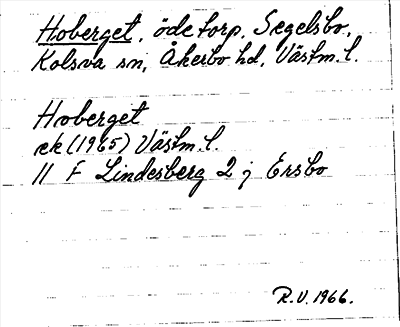 Hoberget, öde torp, Segelsbo,
Kolsva sn, Åkerbo hd, Västm. l.
Hoberget
ek (1965) Västm. l.
11 F Lindesberg 2 j Ersbo
R.V. 1966.